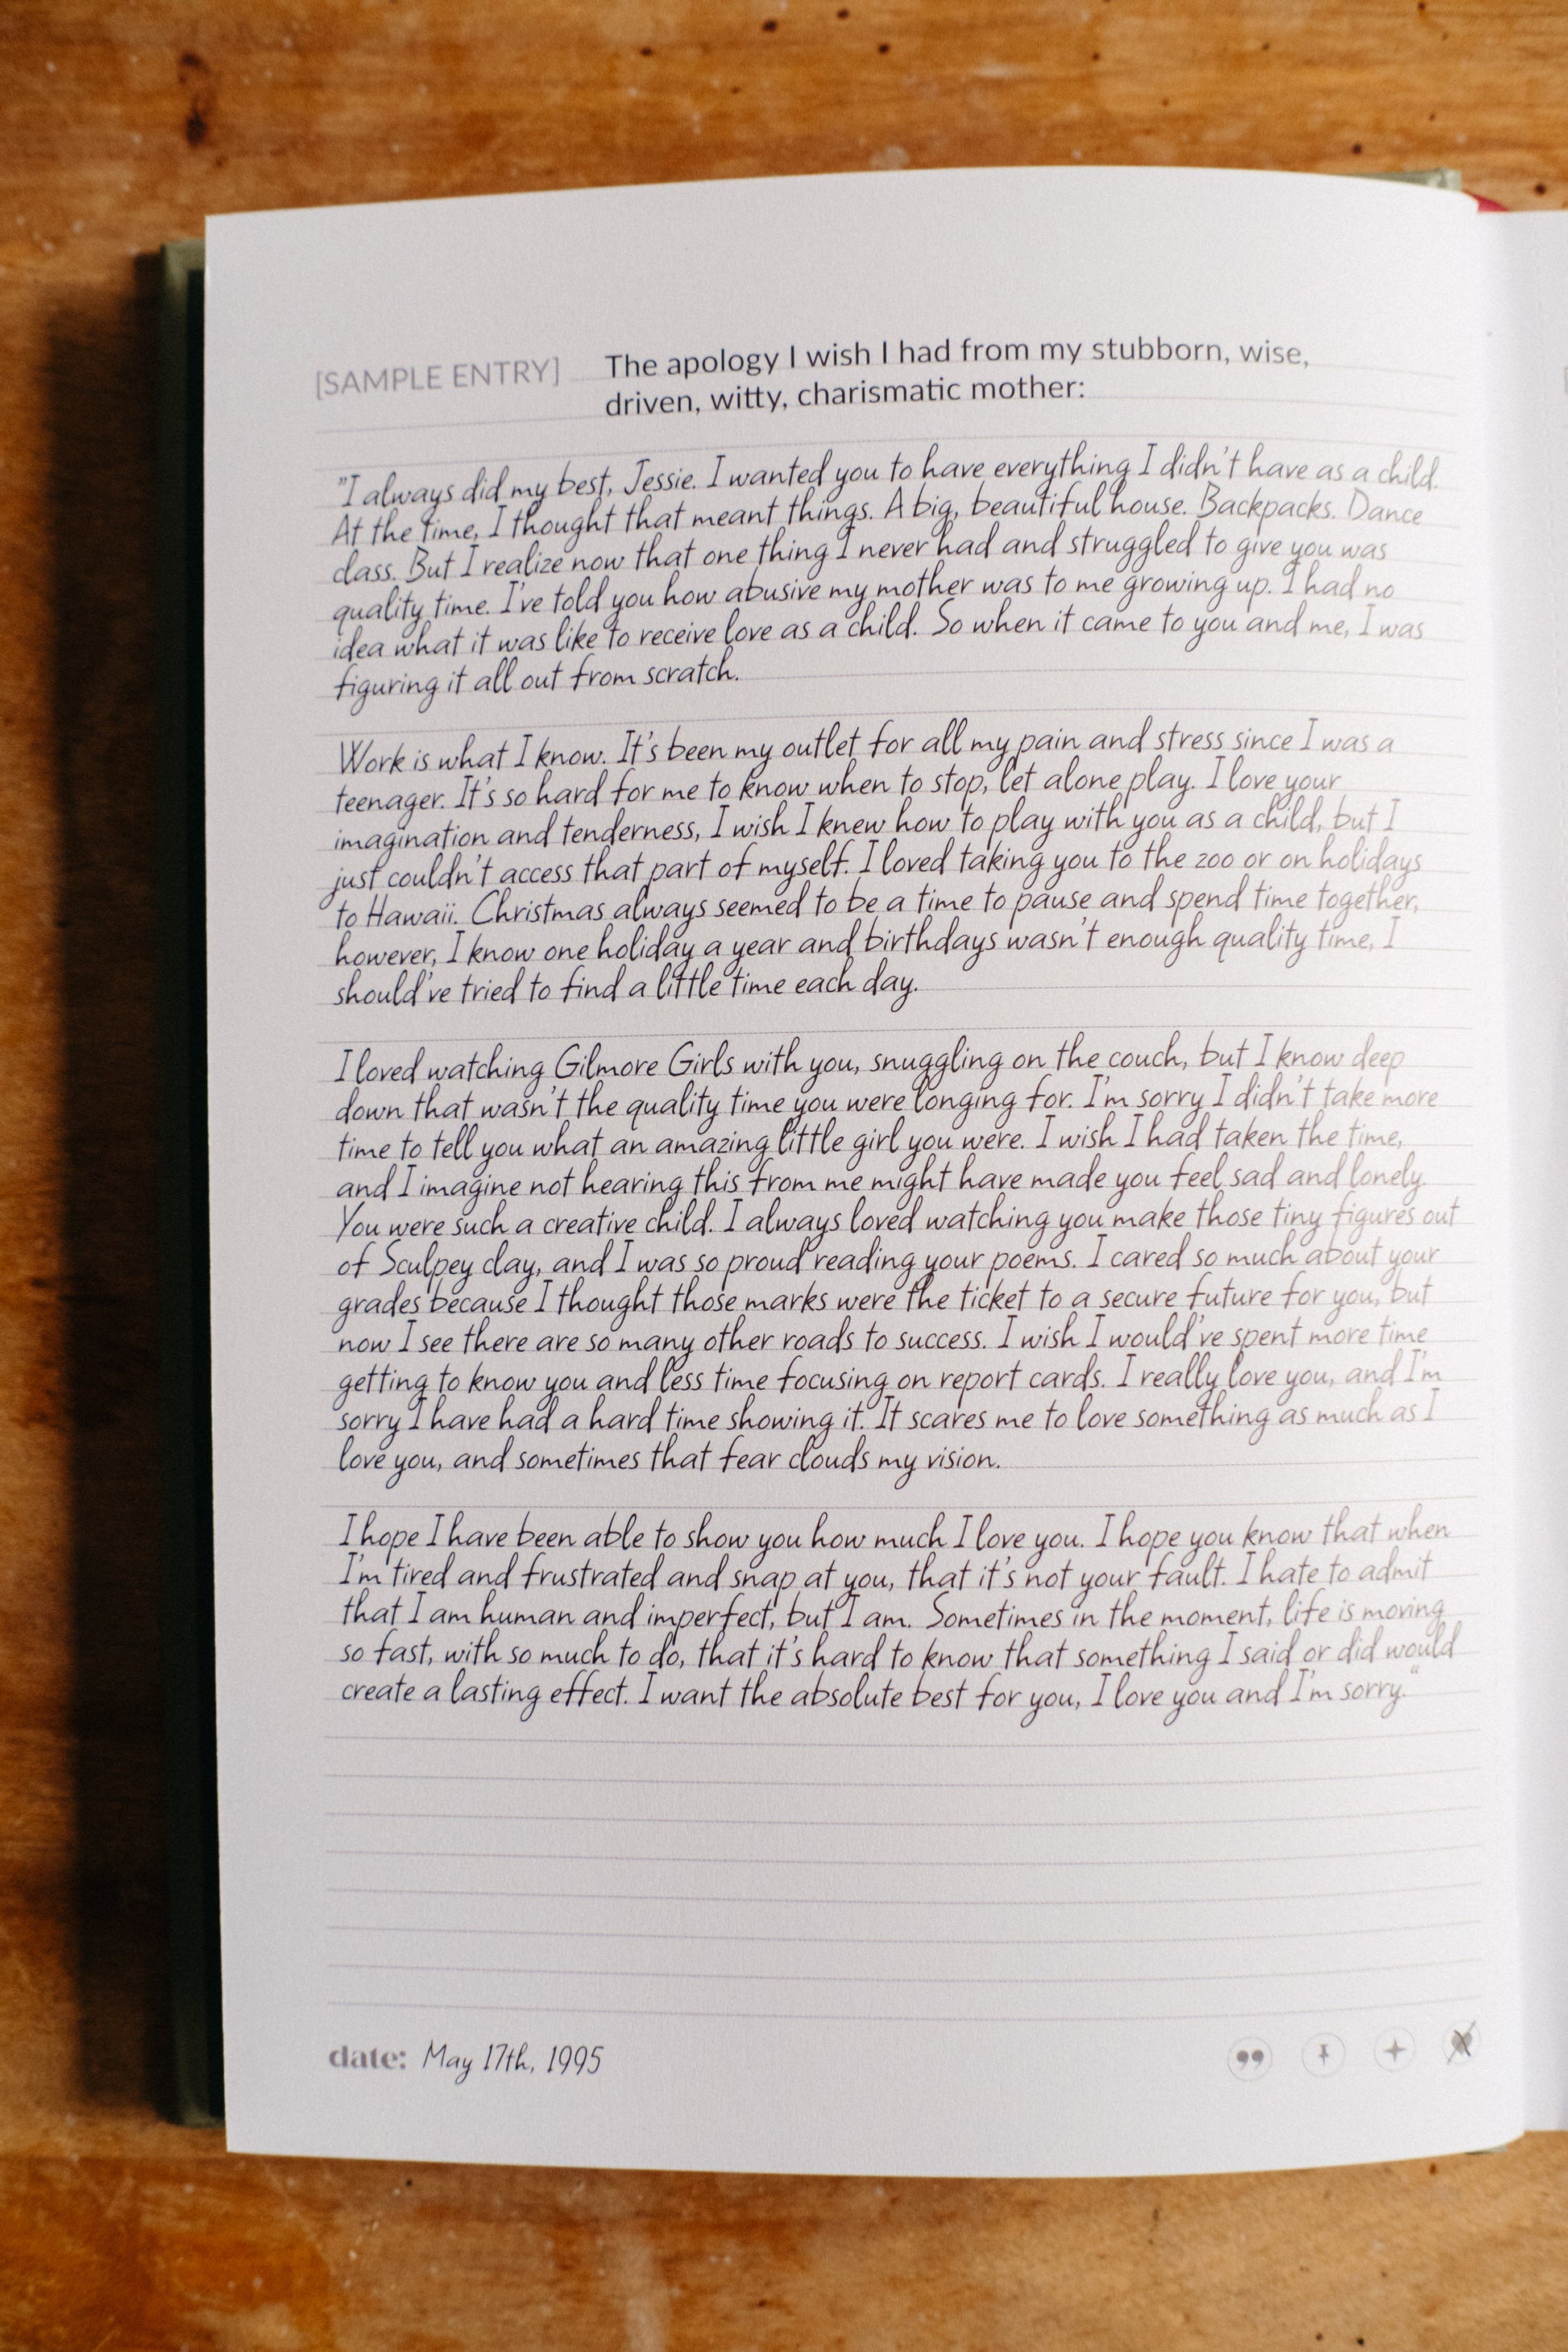 [SAMPLE ENTRY] The apology I wish I had from my stubborn, wise,
driven, witty, charismatic mother:
"I always did my best, Jessie. I wanted you to have everything I didn't have as a child.
At the time, I thought that meant things. A big, beautiful house. Backpacks. Dance
class. But I realize now that one thing I never had and struggled to give you was
quality time. I've told you how abusive my mother was to me growing up. I had no
idea what it was like to receive love as a child. So when it came to you and me, I was
figuring it all out from scratch.
Work is what I know. It's been my outlet for all my pain and stress since I was a
teenager. It's so hard for me to know when to stop, let alone play. I love your
imagination and tenderness, I wish I knew how to play with you as a child, but I
just couldn't access that part of myself. I loved taking you to the zoo or on holidays
to Hawaii. Christmas always seemed to be a time to pause and spend time together,
however, I know one holiday a year and birthdays wasn't enough quality time, I
should've tried to find a little time each day.
I loved watching Gilmore Girls with you, snuggling on the couch, but I know deep
down that wasn't the quality time you were longing for. I'm sorry I didn't take more
time to tell you what an amazing little girl you were. I wish I had taken the time,
and I imagine not hearing this from me might have made you feel sad and lonely.
You were such a creative child. I always loved watching you make those tiny figures out
of Sculpey clay, and I was so proud reading your poems. I cared so much about your
grades because I thought those marks were the ticket to a secure future for you, but
now I see there are so many other roads to success. I wish I would've spent more time
getting to know you and less time focusing on report cards. I really love you, and I'm
sorry I have had a hard time showing it. It scares me to love something as much as I
love you, and sometimes that fear clouds my vision.
I hope I have been able to show you how much I love you. I hope you know that when
I'm tired and frustrated and snap at you, that it's not your fault. I hate to admit
that I am human and imperfect, but I am. Sometimes in the moment, life is moving
so fast, with so much to do, that it's hard to know that something I said or did would
create a lasting effect. I want the absolute best for you, I love you and I'm sorry."
date: May 17th, 1995